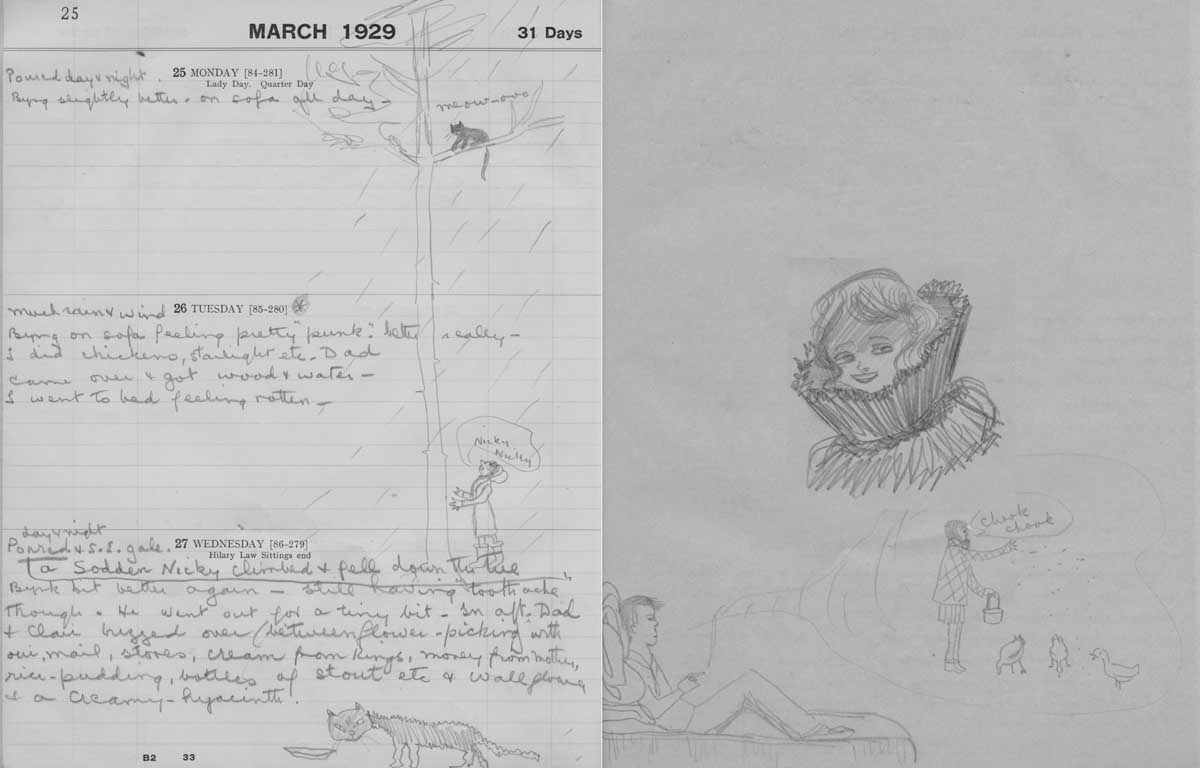 25
MARCH 1929 31 Days
Poured day & night. 25 MONDAY [84-281]
Lady Day. Quarter Day
Byng slightly better - on sofa all day -
meow-ow
much rain & wind 26 TUESDAY [85-280]
Byng on sofa feeling pretty "punk". better really -
I did chickens, starlight etc. Dad
came over & got wood & water -
I went to bed feeling rotten -
Nicky
Nicky
day & night
Poured & S.E. gale. 27 WEDNESDAY [86-279]
Hilary Law Sittings end
(a Sodden Nicky climbed & fell down the tree
but better again - still having tooth ache
though. He went out for a tiny bit - In aft. Dad
& Clair buzzed over (between flower-picking) with
our mail, stores, cream from Kings, money from mother,
rice-pudding, bottles of stout etc & wallflowers
& a creamy-hyacinth.
B2 33
chook
chook